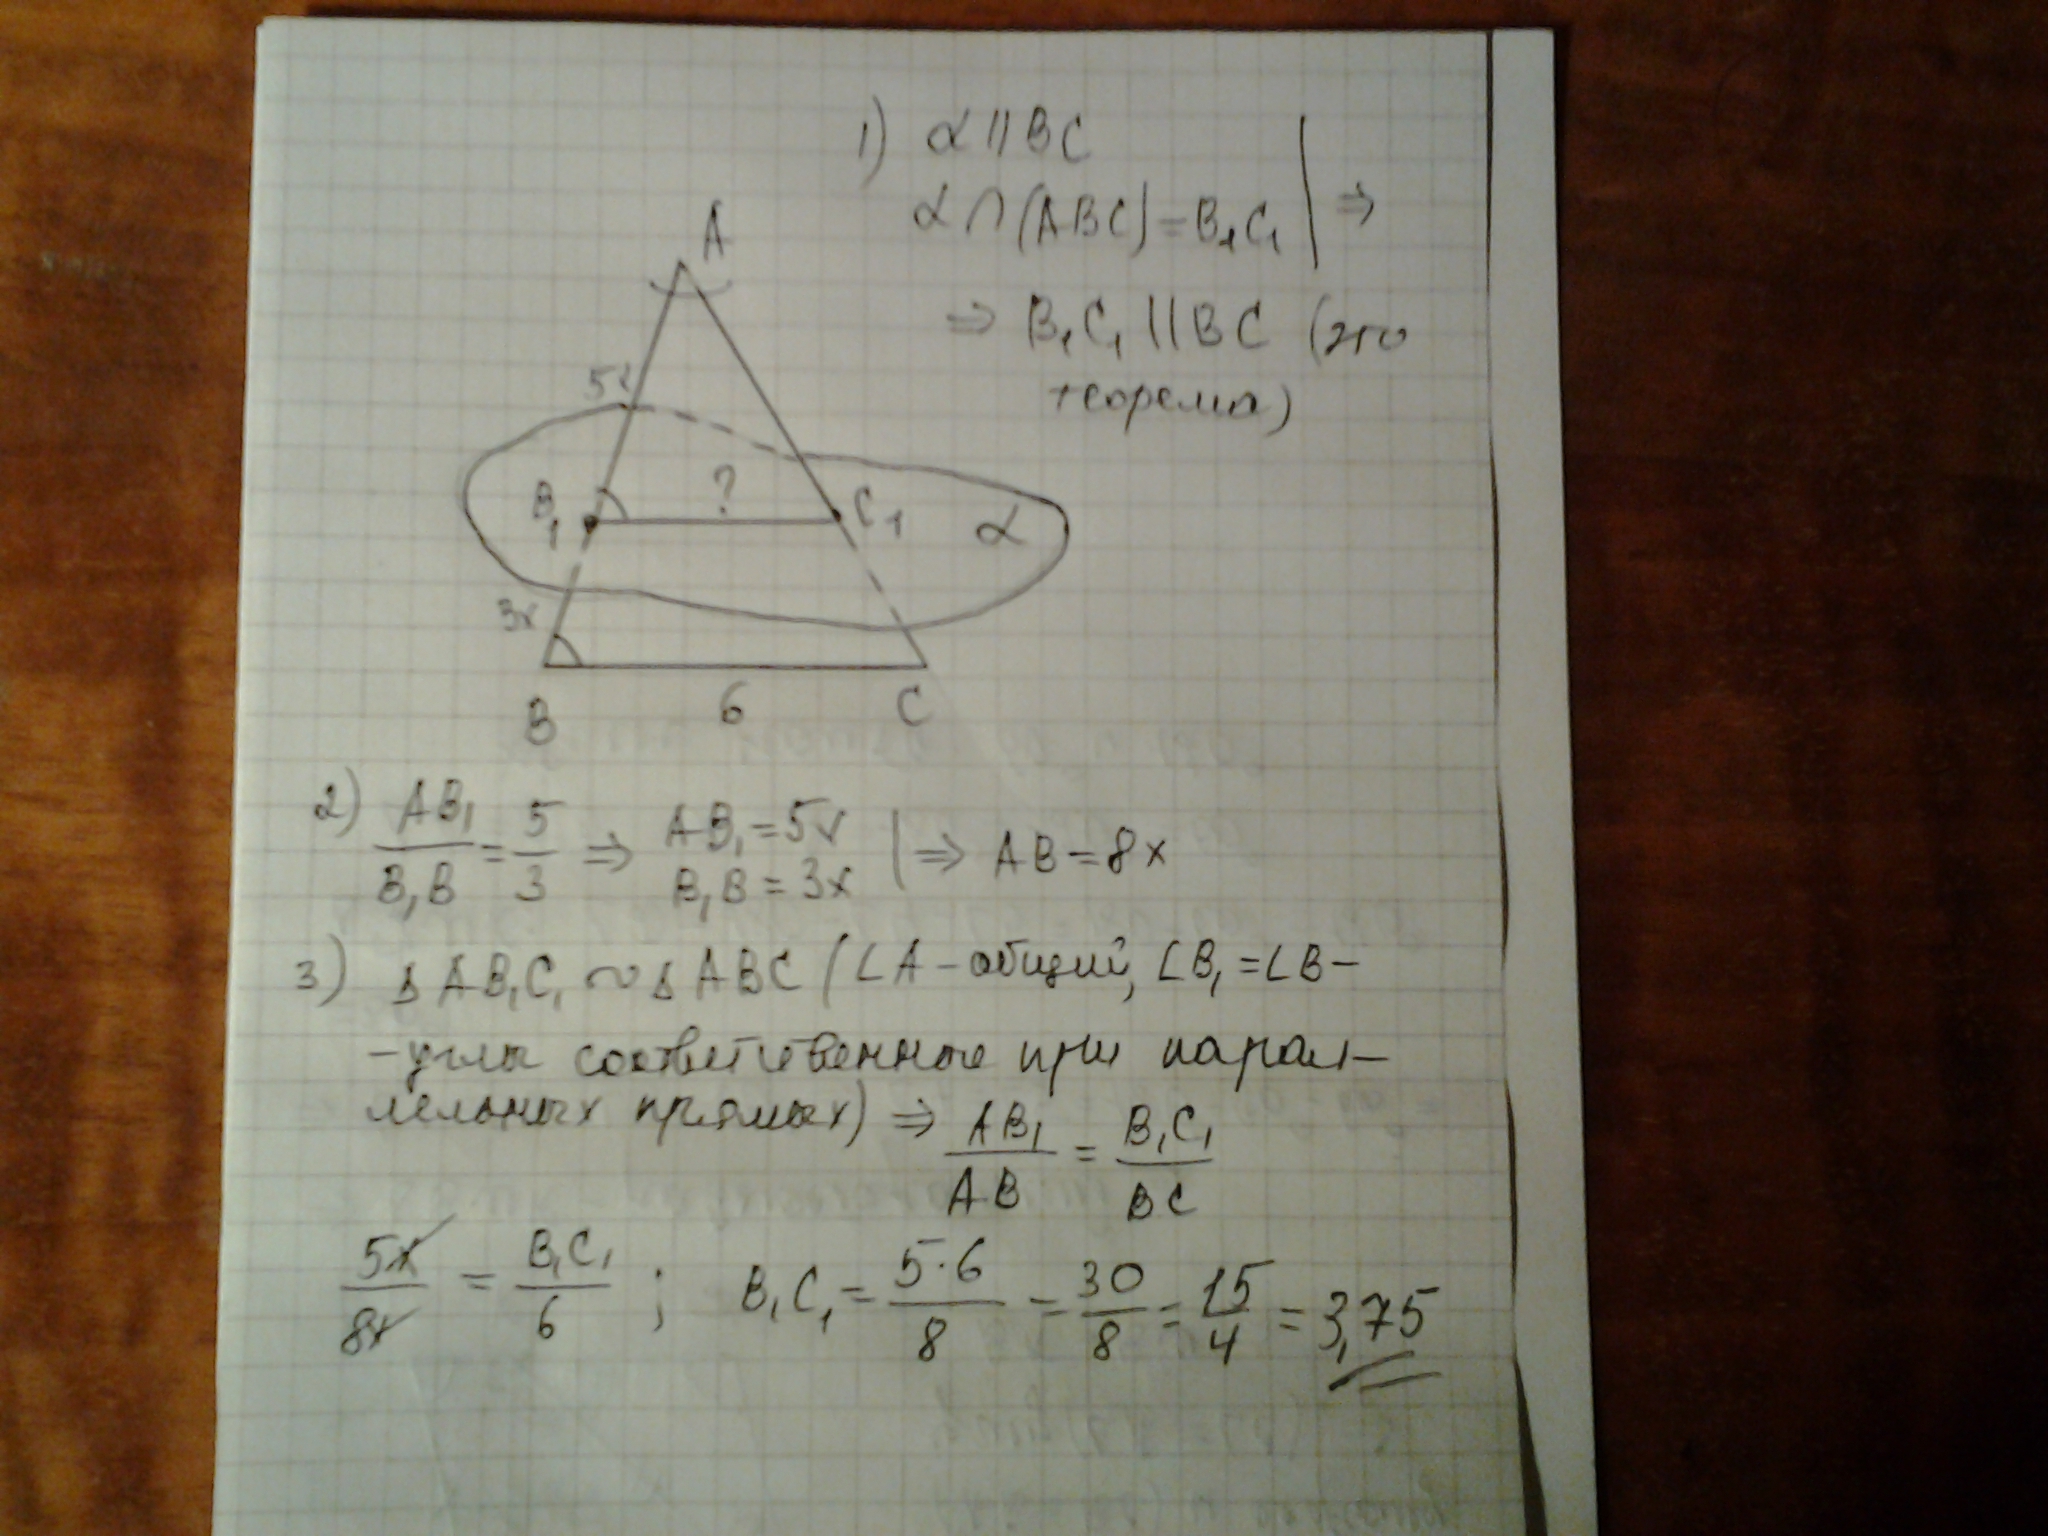 1) α || BC
α ∩ (ABC) = B₁C₁ | ⇒
⇒ B₁C₁ || BC (это
теорема)
A
5x
B₁ ? C₁ α
3x
B 6 C
2) AB₁/B₁B = 5/3 ⇒ AB₁ = 5x B₁B = 3x | ⇒ AB = 8x
3) Δ AB₁C₁ ~ Δ ABC (∠A – общий, ∠B₁ = ∠B –
– углы соответственные при парал–
лельных прямых) ⇒ AB₁/AB = B₁C₁/BC
5x/8x = B₁C₁/6 ; B₁C₁ = 5·6/8 = 30/8 = 15/4 = 3,75